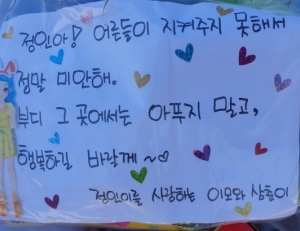 정인아! 어른들이 지켜주지 못해서
정말 미안해.
부디 그 곳에서는 아푸지 말고,
행복하길 바랄께 ~♡
정인이를 사랑하는 이모와 삼촌이